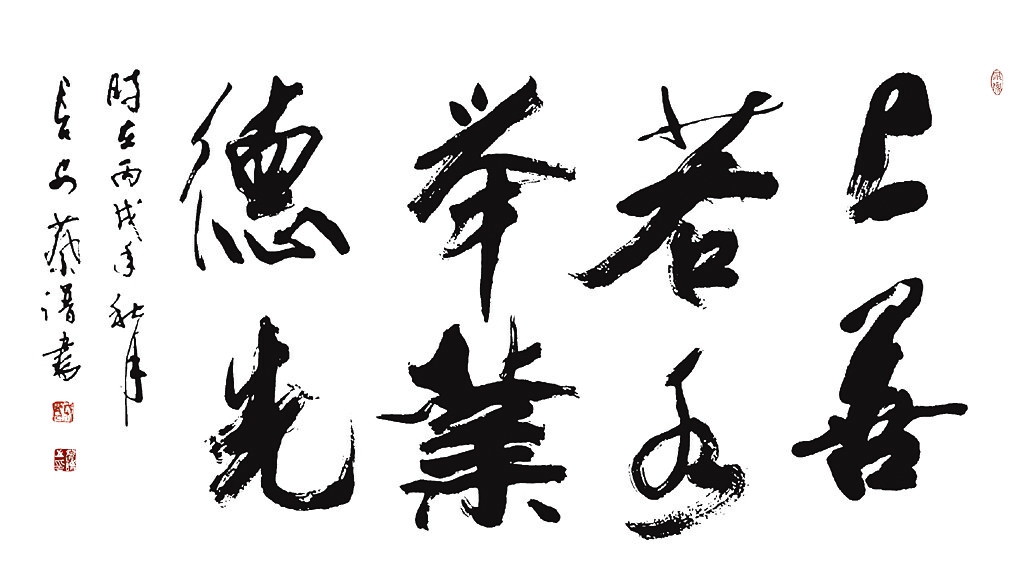 上善
若水
举業
德先
時在丙戌年秋月
長安蔡谱書